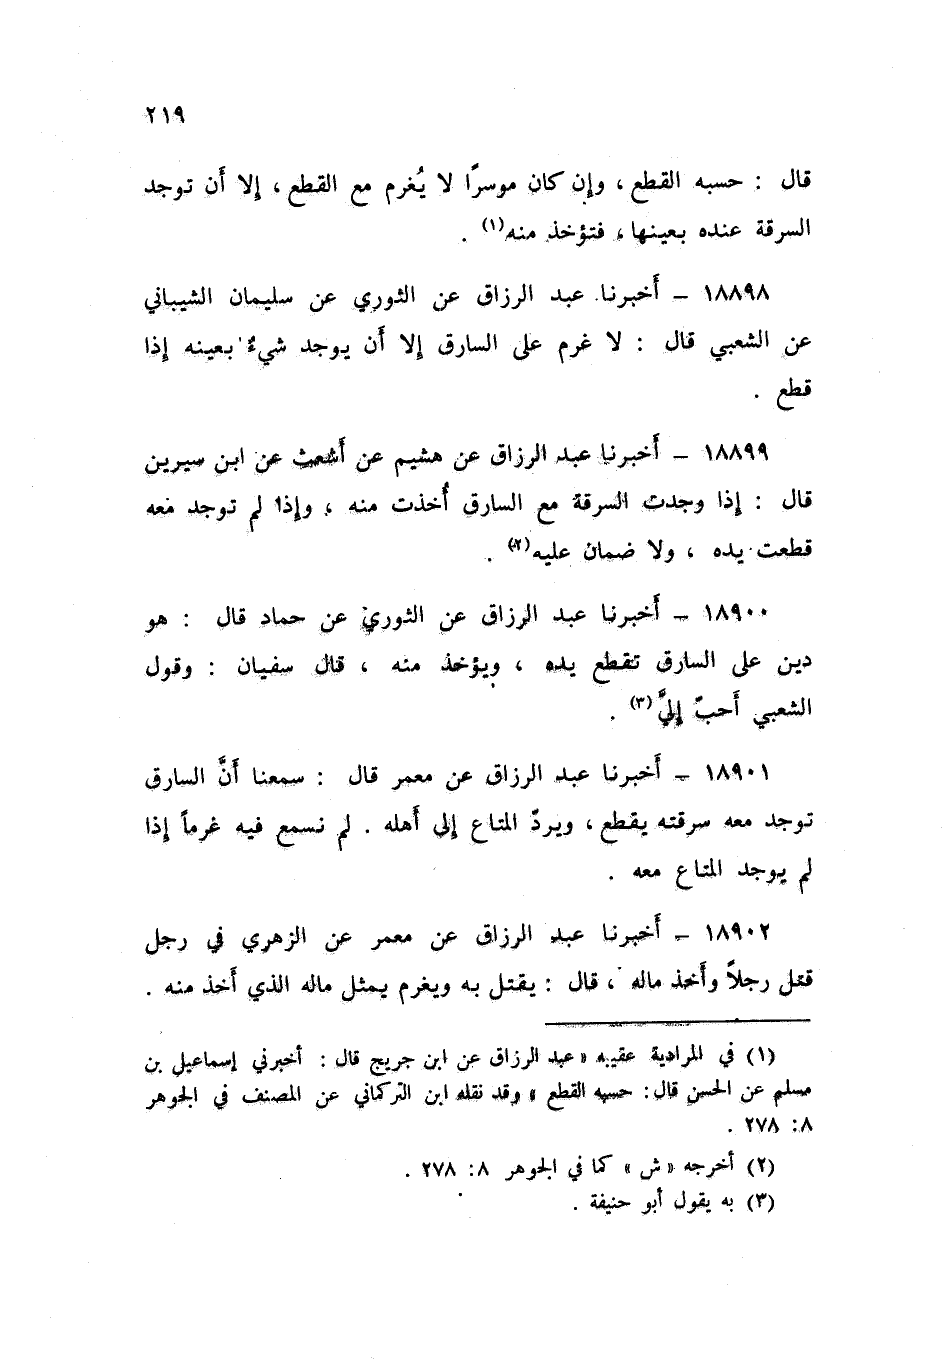 ٢١٩
قال : حسبه القطع ، وإن كان موسرًا لا يُغرم مع القطع ، إلا أن توجد
السرقة عنده بعينها ، فتؤخذ منه(١) .
١٨٨٩٨ – أخبرنا عبد الرزاق عن الثوري عن سليمان الشيباني
عن الشعبي قال : لا غرم على السارق إلا أن يوجد شيءٌ بعينه إذا
قطع .
١٨٨٩٩ – أخبرنا عبد الرزاق عن هشيم عن أشعث عن ابن سيرين
قال : إذا وجدت السرقة مع السارق أُخذت منه ، وإذا لم توجد معه
قطعت يده ، ولا ضمان عليه(٢) .
١٨٩٠٠ – أخبرنا عبد الرزاق عن الثوري عن حماد قال : هو
دين على السارق تقطع يده ، ويؤخذ منه ، قال سفيان : وقول
الشعبي أحبّ إليَّ(٣) .
١٨٩٠١ – أخبرنا عبد الرزاق عن معمر قال : سمعنا أنَّ السارق
توجد معه سرقته يقطع ، ويردّ المتاع إلى أهله . لم نسمع فيه غرماً إذا
لم يوجد المتاع معه .
١٨٩٠٢ – أخبرنا عبد الرزاق عن معمر عن الزهري في رجل
قتل رجلاً وأخذ ماله ، قال : يقتل به ويغرم يمثل ماله الذي أخذ منه .
(١) في المرادية عقيبه « عبد الرزاق عن ابن جريج قال : أخبرني إسماعيل بن
مسلم عن الحسن قال : حسبه القطع » وقد نقله ابن التركماني عن المصنف في الجوهر
٨: ٢٧٨ .
(٢) أخرجه « ش » كما في الجوهر ٨: ٢٧٨ .
(٣) به يقول أبو حنيفة .